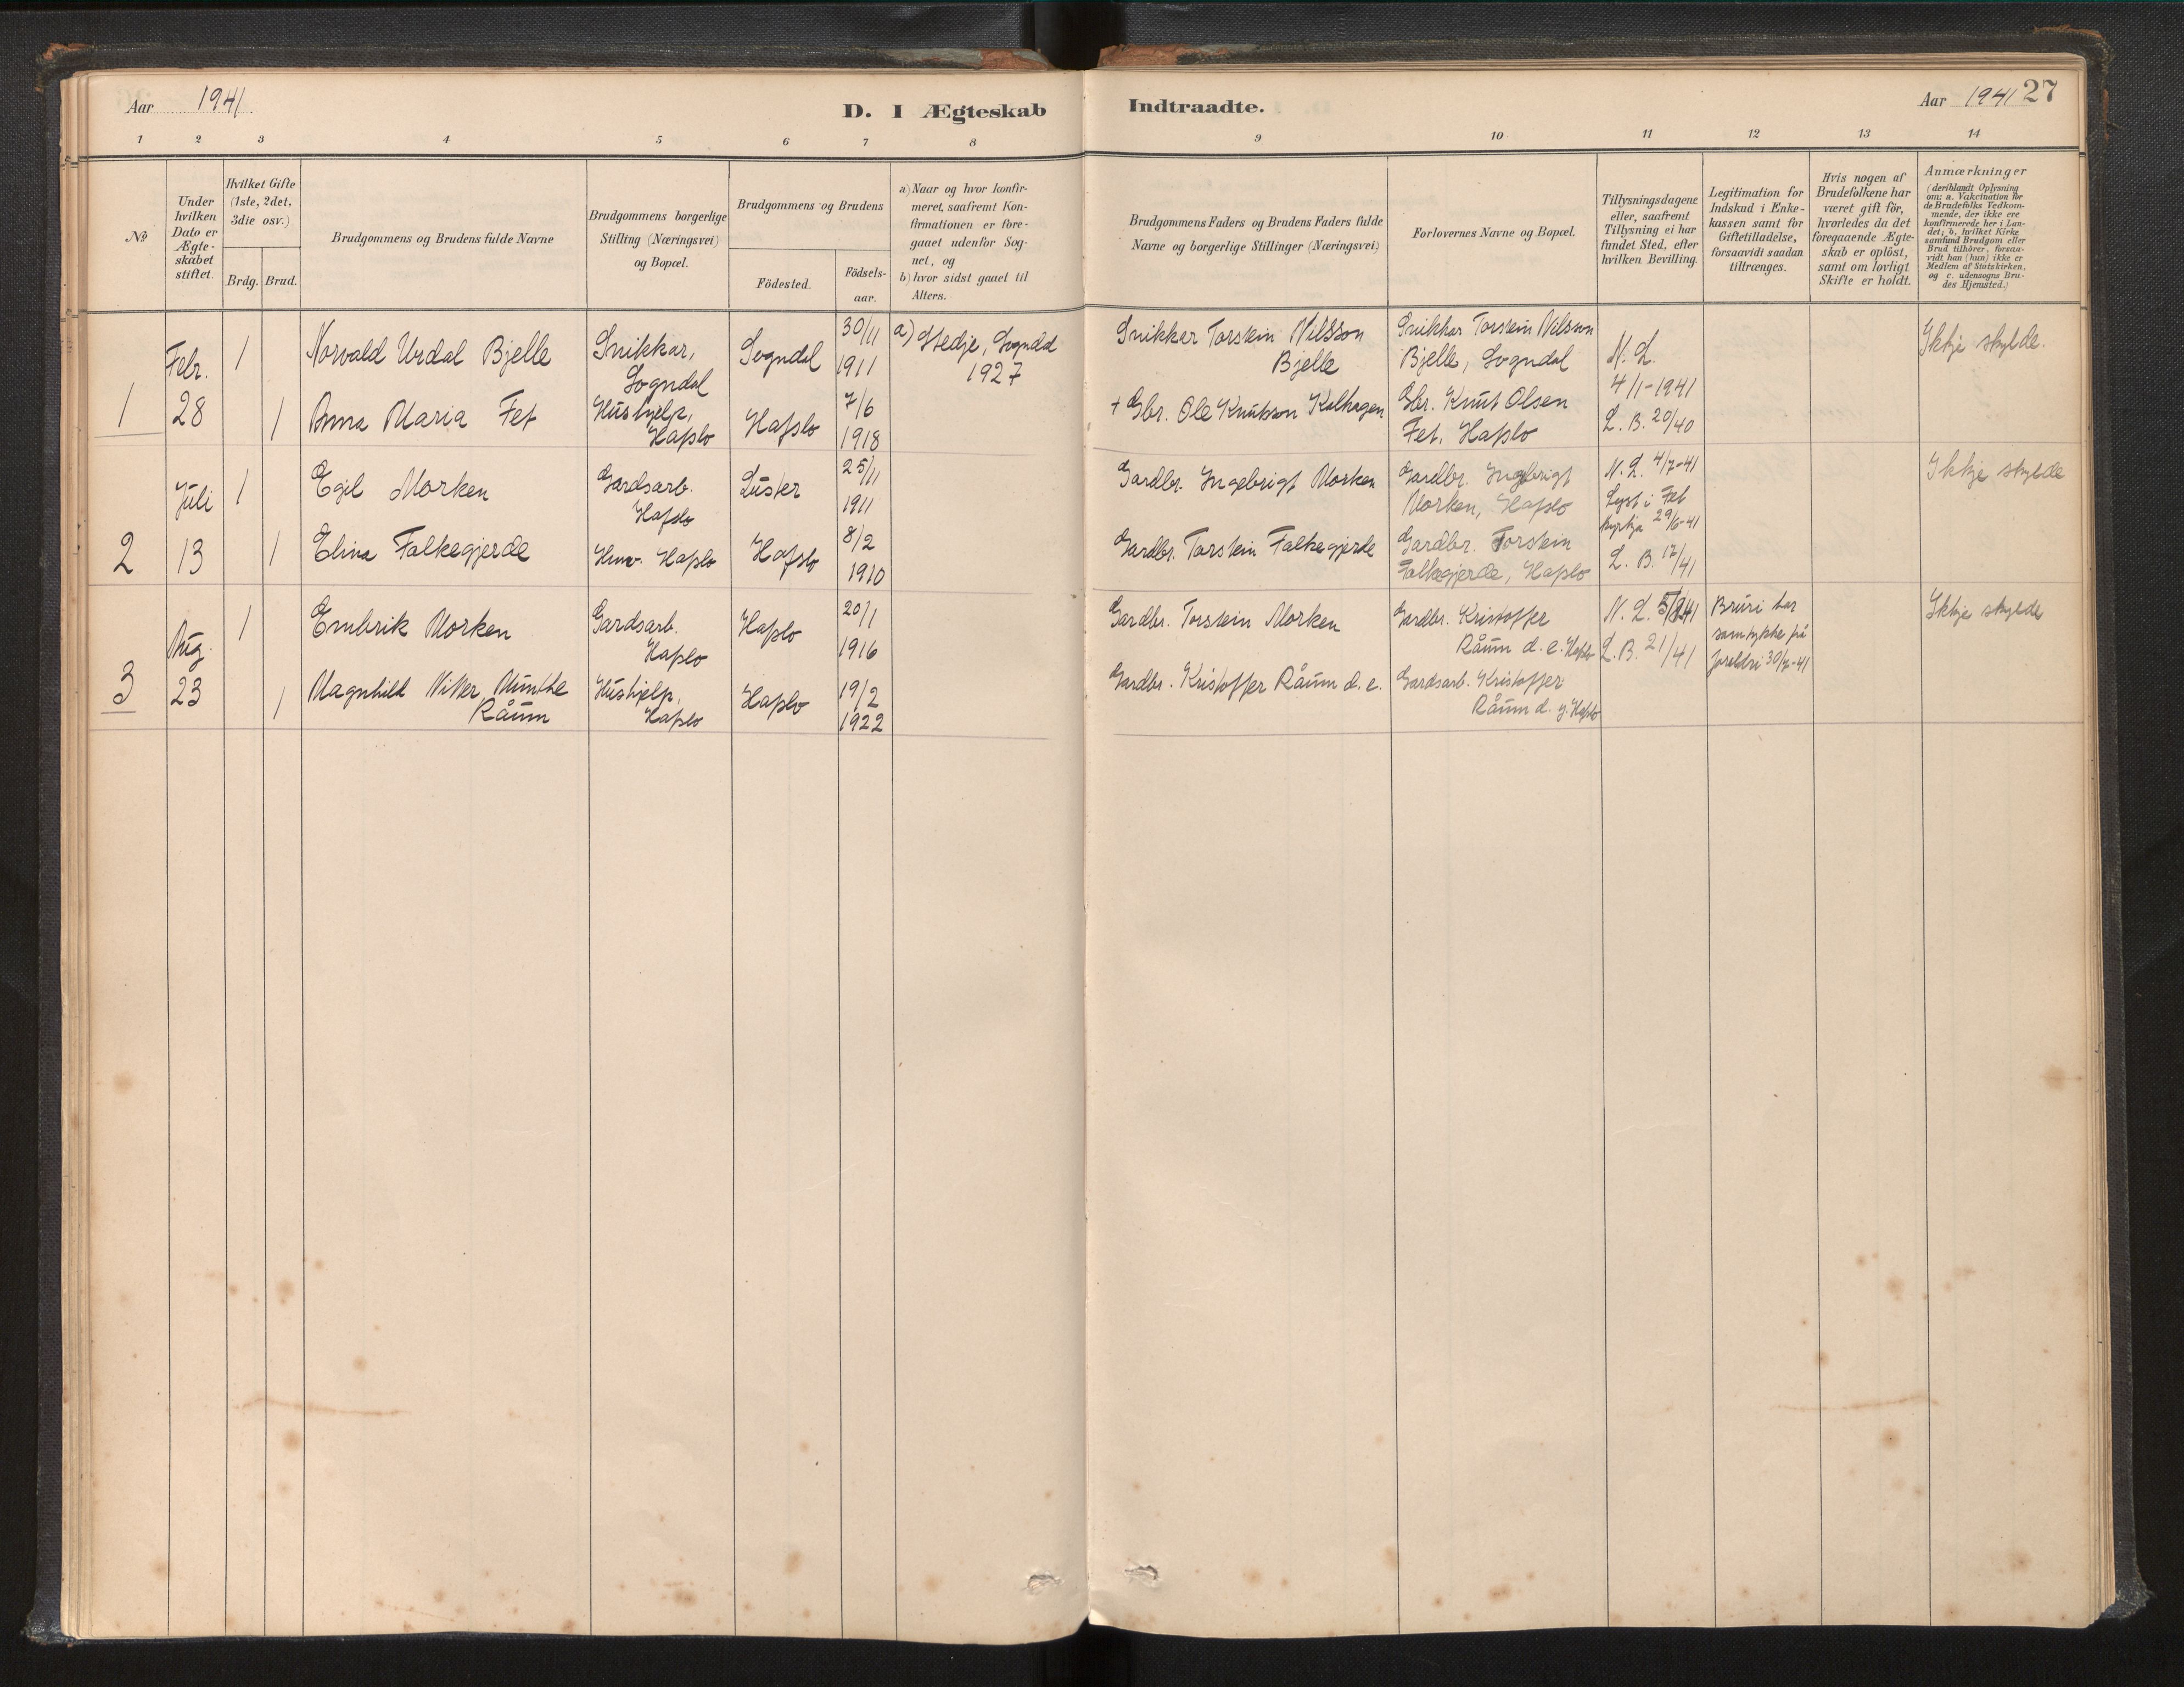 Aar 1941
D. I Ægteskab
Indtraadte.
Aar 1941 27
1 2 3 4 5 6 7 8
9 10 11 12 13 14
No
Under
hvilken
Dato er
Ægte-
skabet
stiftet.
Hvilket Gifte
(1ste, 2det,
3die osv.)
Brdg. Brud.
Brudgommens og Brudens fulde Navne
Brudgommens borgerlige
Stilling (Næringsvei)
og Bopæl.
Brudgommens og Brudens
Födested.
Födsels-
aar.
a) Naar og hvor konfir-
meret, saafremt Kon-
firmationen er fore-
gaaet udenfor Sog-
net, og
b) hvor sidst gaaet til
Alters.
Brudgommens Faders og Brudens Faders fulde
Navne og borgerlige Stillinger (Næringsvei)
Forlovernes Navne og Bopæl.
Tillysningsdagene
eller, saafremt
Tillysning ei har
fundet Sted, efter
hvilken Bevilling.
Legitimation for
Indskud i Enke-
kassen samt for
Giftetilladelse,
forsaavidt saadan
tiltrænges.
Hvis nogen af
Brudefolkene har
været gift för,
hvorledes da det
foregaaende Ægte-
skab er oplöst,
samt om lovligt
Skifte er holdt.
Anmærkninger
(deriblandt Oplysning
om: a. Vakcination for
de Brudefolks Vedkom-
mende, der ikke ere
konfirmerede her i Lan-
det; b. hvilket Kirke-
samfund Brudgom eller
Brud tilhörer, forsaa-
vidt han (hun) ikke er
Medlem af Statskirken,
og c. udensogns Bru-
des Hjemsted.)
1
Febr.
28
1
Norvald Urdal Bjelle
Snikkar,
Sogndal
Sogndal
30/11
1911
a) Stedje, Sogndal
1927
Snikker Torstein Nilsson
Bjelle
Snikkar Torstein Nilsson
Bjelle, Sogndal
N. L.
4/1-1941
L. B. 20/40
Ikkje skylde.
1
Anna Maria Fet
Hushjelp,
Hafslo
Hafslo
7/6
1918
+ Gbr. Ole Knutson Kalhagen
Gbr. Knut Olsen
Fet, Hafslo
2
Juli
13
1
Egil Morken
Gardsarb.
Hafslo
Luster
25/11
1911
Gardbr. Ingebrigt Morken
Gardbr. Ingebrigt
Morken, Hafslo
N. L. 4/7-41
Lyst i Fet
kyrkja 29/6-41
L. B. 17/41
Ikkje skylde
1
Elina Falkegjerde
Hafslo
Hafslo
8/2
1910
Gardbr. Torstein Falkegjerde
Gardbr. Torstein
Falkegjerde, Hafslo
3
Aug.
23
1
Embrik Morken
Gardsarb.
Hafslo
Hafslo
20/1
1916
Gardbr. Torstein Morken
Gardbr. Kristoffer
Råum d. e. Hafslo
N. L.
L. B. 21/41
Bruri har
samtykke frå
foreldri 30/7-41
Ikkje skylde
1
Magnhild Munthe
Råum
Hushjelp,
Hafslo
Hafslo
19/2
1922
Gardbr. Kristoffer Råum d. e.
Gardsarb. Kristoffer
Råum d. y. Hafslo